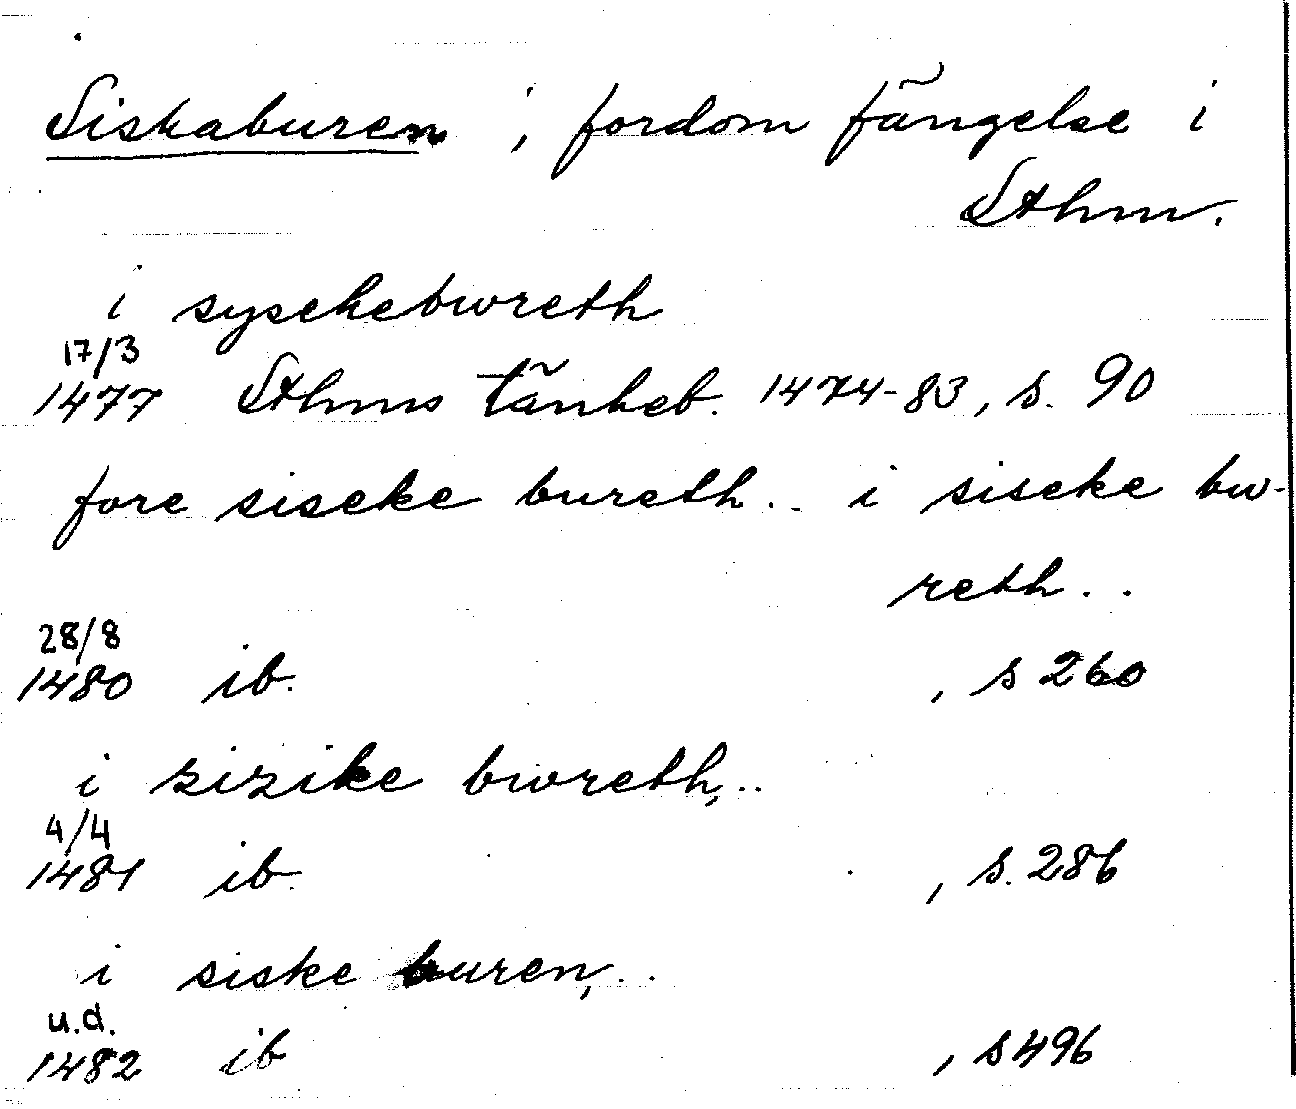 Siskaburen, fordom fängelse i
Sthm.
i sysckebwreth
17/3
1477 Sthms tänkeb. 1474-83, s. 90
fore siscke bureth.. i siscke bw-
reth..
28/8
1480 ib. , s 260
i zizike bwreth,..
4/4
1481 ib. , s. 286
i siske buren,..
u.d.
1482 ib , s 496